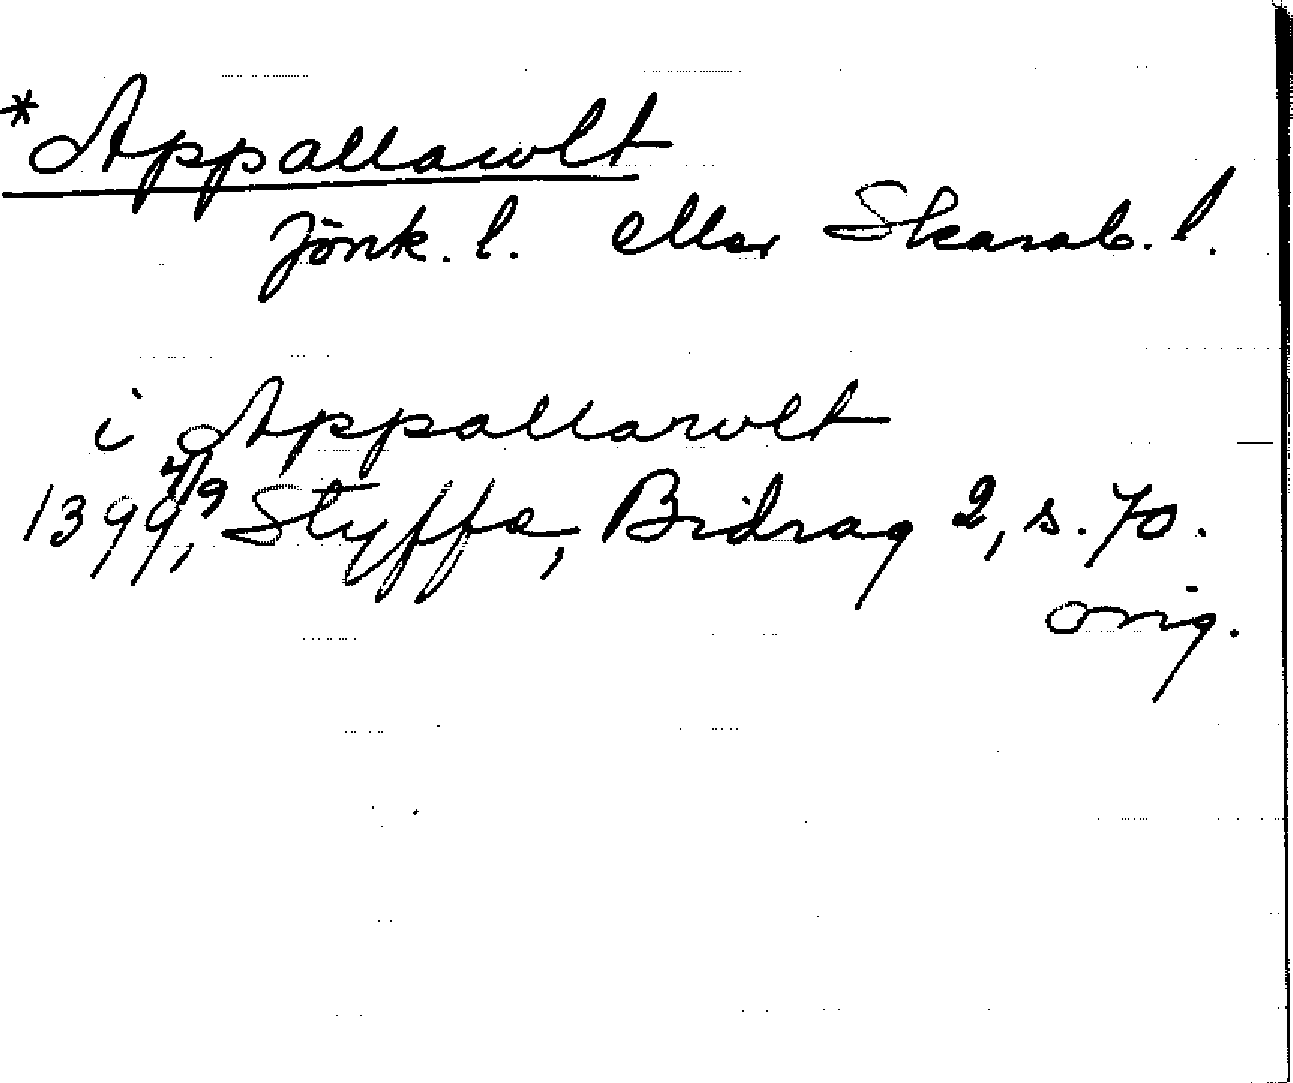 *Appallawlt
Jönk. l. eller Skarab. l.
i Appallarwlt
1399 4/9, Styffe, Bidrag 2, s. 70.
orig.